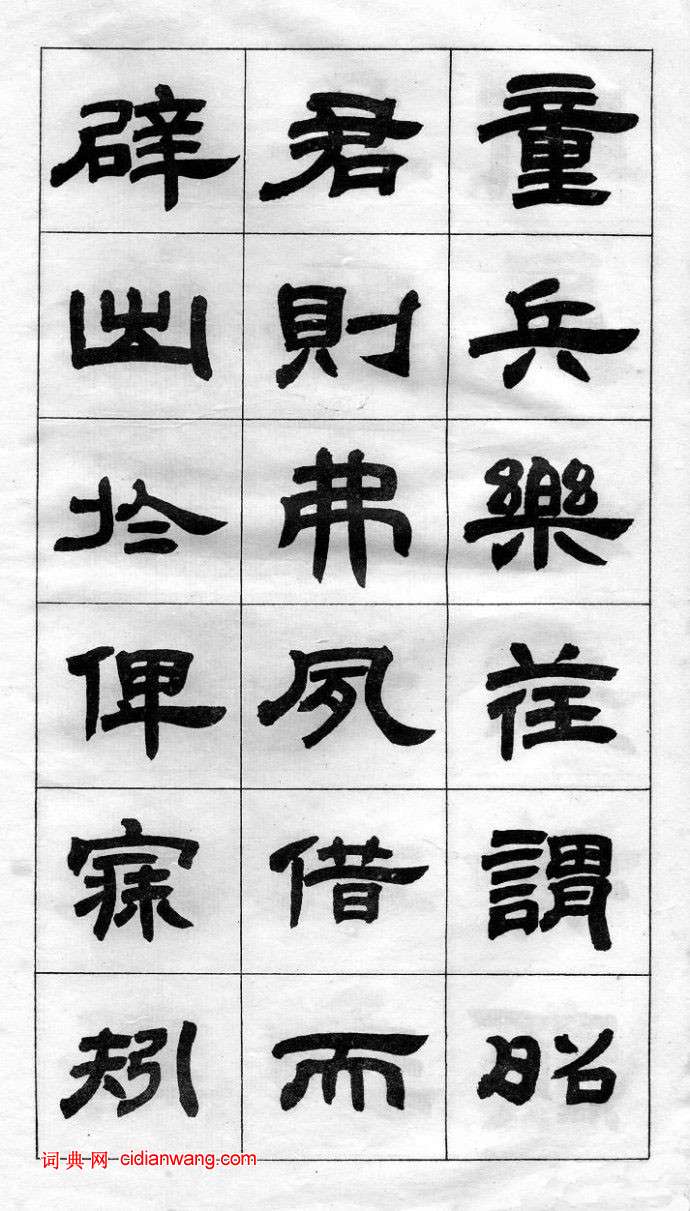 童兵樂荏謂昭
君則弗夙借而
辟出於俾寐矧
词典网 cidianwang.com